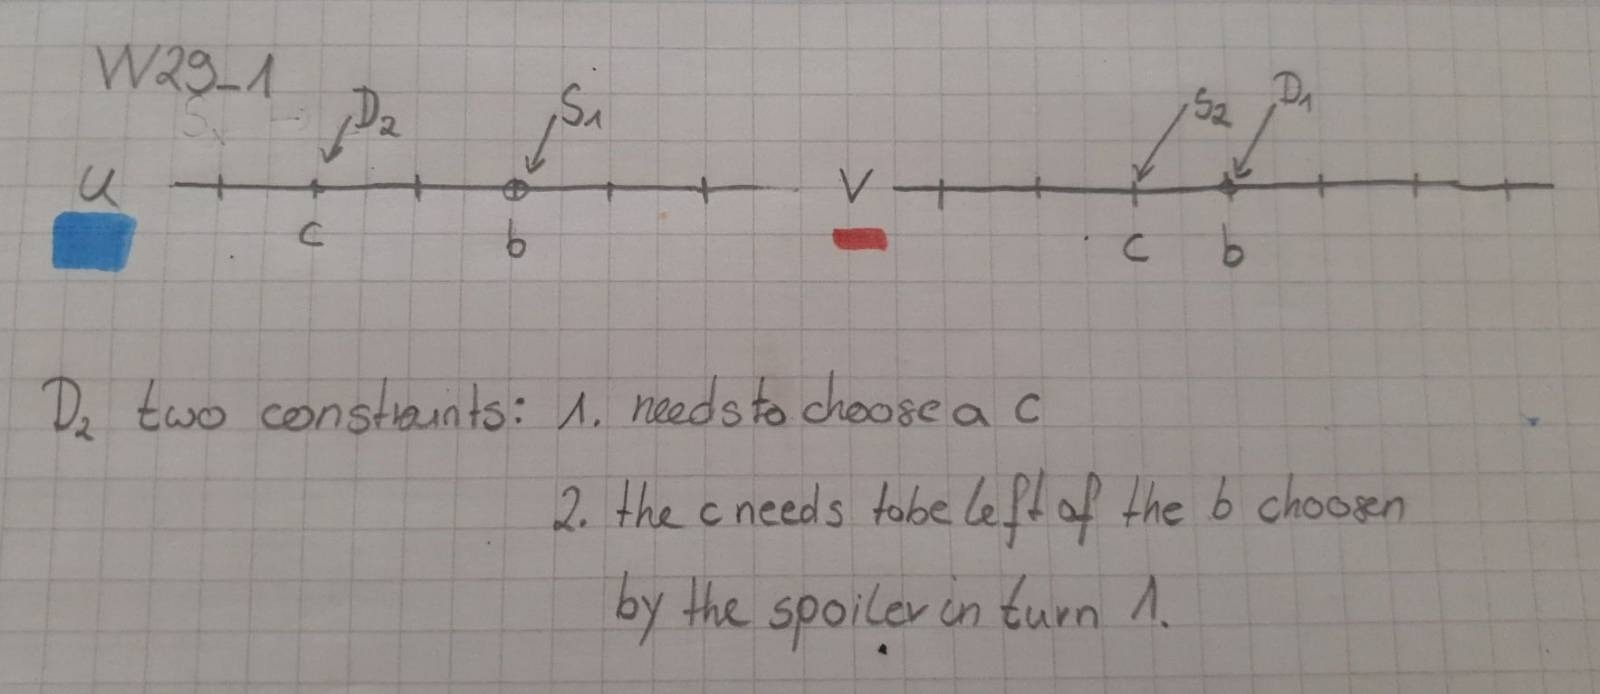 W29_1
D2 S1 S2 D1
U V
c b c b
D2 two constraints: 1. needs to choose a c
2. the c needs to be left of the b choosen
by the spoiler in turn 1.